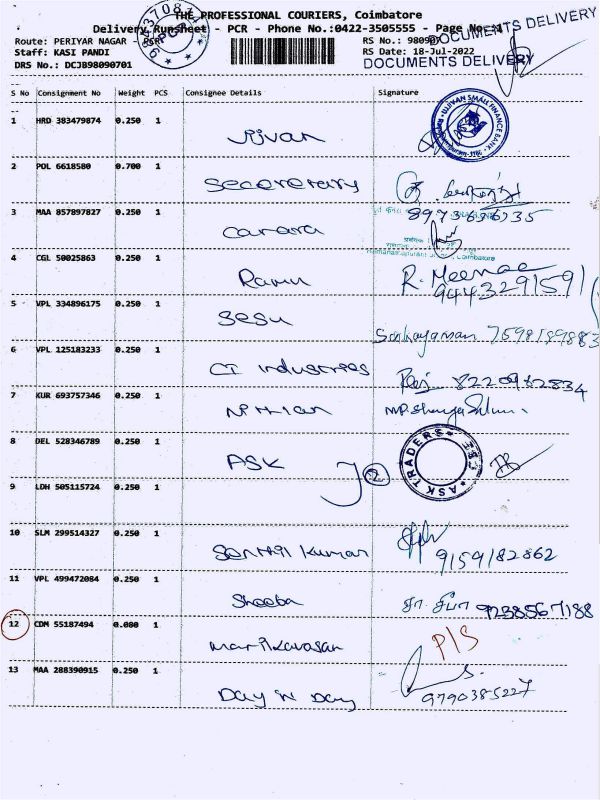 THE PROFESSIONAL COURIERS, Coimbatore
Delivery Runsheet - PCR - Phone No.:0422-3505555 - Page No.:1
DOCUMENTS DELIVERY
Route: PERIYAR NAGAR - PCR
RS No.: 980907
Staff: KASI PANDI
RS Date: 18-Jul-2022
DRS No.: DCJB98090701
DOCUMENTS DELIVERY
S No Consignment No Weight PCS Consignee Details Signature
1 HRD 383479874 0.250 1 Ujjivan
UJJIVAN SMALL FINANCE BANK
2 POL 6618580 0.700 1 Secererary
3 MAA 857897827 0.250 1 Canara 8973696735
Coimbatore
4 CGL 50025863 0.250 1 Ramu R. Meenaa
9443291591
5 VPL 334896175 0.250 1 Sesu
7598189883
6 VPL 125183233 0.250 1 CI industries 8220982834
7 KUR 693757346 0.250 1
8 DEL 528346789 0.250 1 ASK
ASK TRADERS
9 LDH 505115724 0.250 1
2
10 SLM 299514327 0.250 1 Senthil Kumar 9159182862
11 VPL 499472084 0.250 1 Sheeba சா. சீபா
12 CDM 55187494 0.080 1 Marikavasan P/S
13 MAA 288390915 0.250 1 Day N Day 9790385227